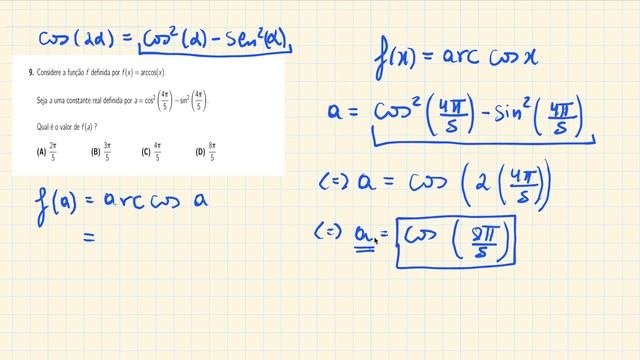 cos(2α) = cos²(α) - sen²(α)
9. Considere a função f definida por f(x) = arccos(x).
Seja a uma constante real definida por a = cos²(4π/5) − sin²(4π/5).
Qual é o valor de f(a) ?
(A) 2π/5 (B) 3π/5 (C) 4π/5 (D) 8π/5
f(a) = arc cos a
=
f(x) = arc cos x
a = cos²(4π/5) - sin²(4π/5)
(=) a = cos (2(4π/5))
(=) a = cos (8π/5)